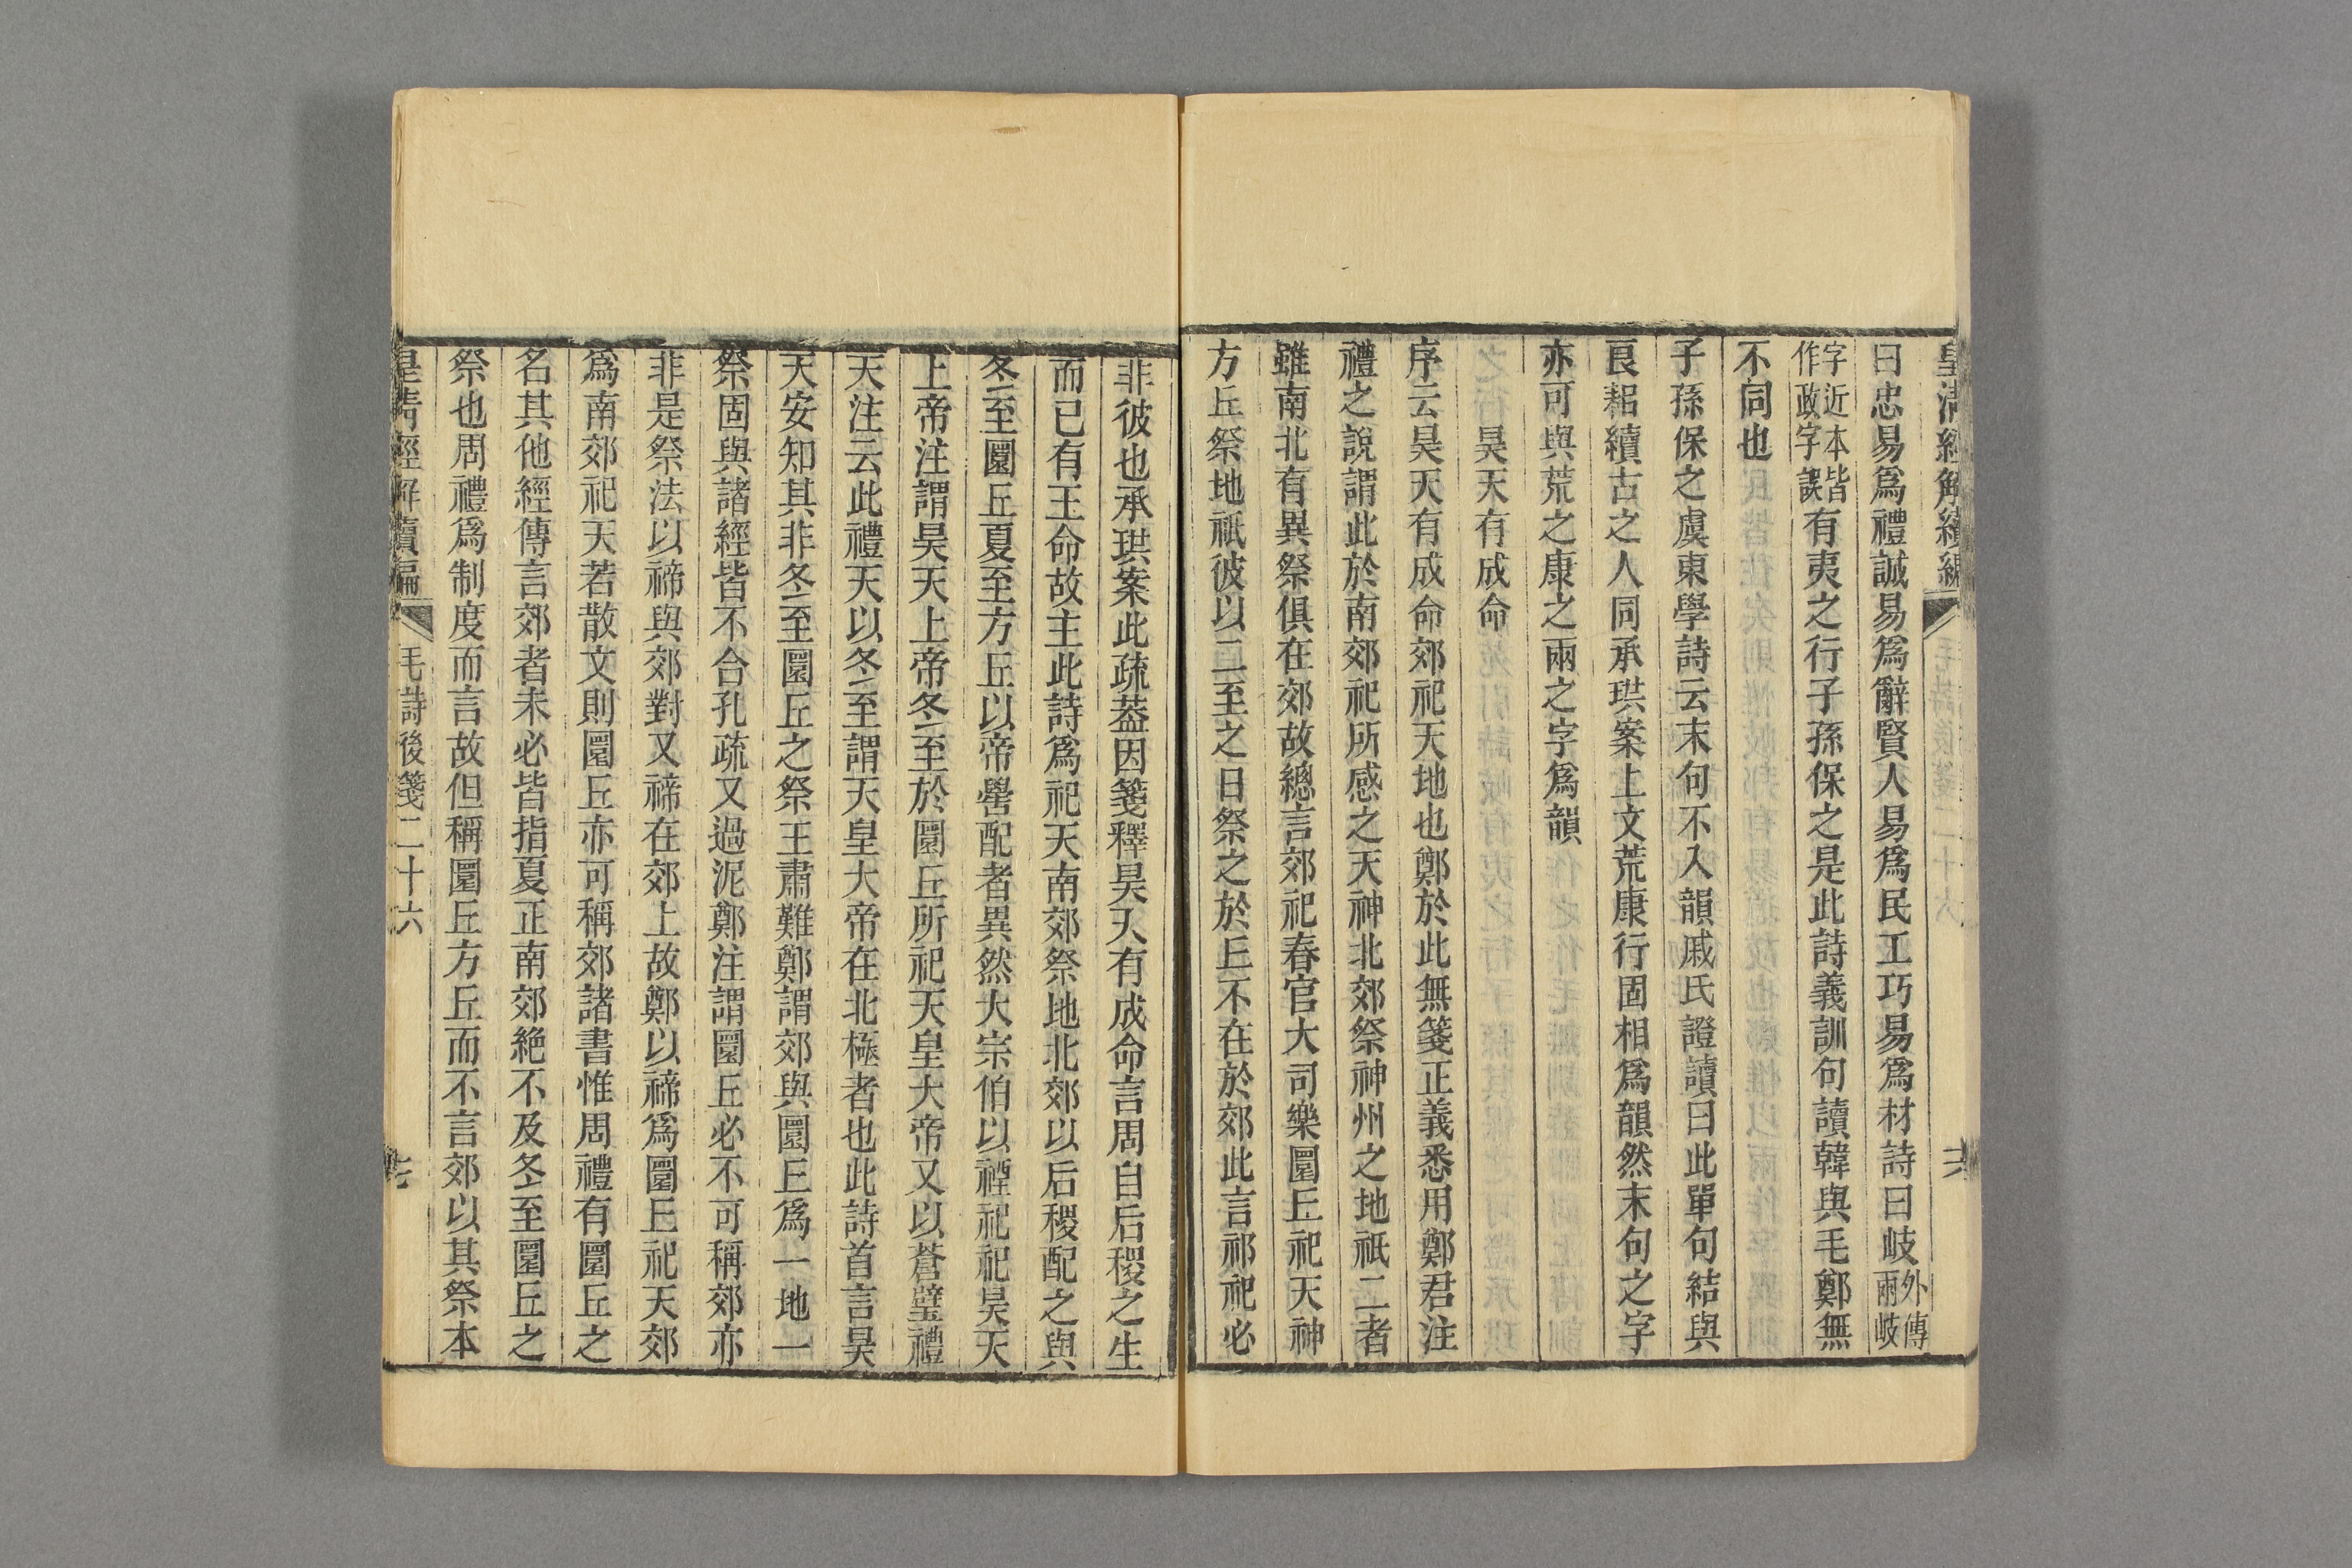 皇清經解續編
曰忠易爲禮誠易爲辭賢人易爲民工巧易爲材詩曰岐外傳兩岐
字近本皆作政字誤有夷之行子孫保之是此詩義訓句讀韓與毛鄭無
不同也
子孫保之虞東學詩云末句不入韻戚氏證讀曰此單句結與
良耜續古之人同承珙案上文荒康行固相爲韻然末句之字
亦可與荒之康之兩之字爲韻
昊天有成命
序云昊天有成命郊祀天地也鄭於此無箋正義悉用鄭君注
禮之說謂此於南郊祀所感之天神北郊祭神州之地祇二者
雖南北有異祭俱在郊故總言郊祀春官大司樂圜丘祀天神
方丘祭地祇彼以二至之日祭之於丘不在於郊此言郊祀必
非彼也承珙案此疏蓋因箋釋昊天有成命言周自后稷之生
而已有王命故主此詩爲祀天南郊祭地北郊以后稷配之與
冬至圜丘夏至方丘以帝嚳配者異然大宗伯以禋祀祀昊天
上帝注謂昊天上帝冬至於圜丘所祀天皇大帝又以蒼璧禮
天注云此禮天以冬至謂天皇大帝在北極者也此詩首言昊
天安知其非冬至圜丘之祭王肅難鄭謂郊與圜丘爲一地一
祭固與諸經皆不合孔疏又過泥鄭注謂圜丘必不可稱郊亦
非是祭法以禘與郊對又禘在郊上故鄭以禘爲圜丘祀天郊
爲南郊祀天若散文則圜丘亦可稱郊諸書惟周禮有圜丘之
名其他經傳言郊者未必皆指夏正南郊絶不及冬至圜丘之
祭也周禮爲制度而言故但稱圜丘方丘而不言郊以其祭本
皇清經解續編 毛詩後箋二十六